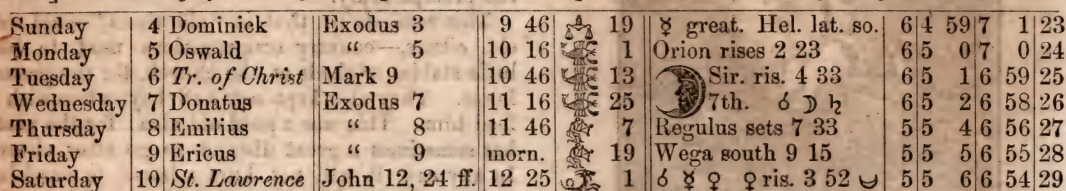 Sunday 4 Dominick Exodus 3 9 46 ♎ 19 ☿ great. Hel. lat. so. 6 4 59 7 1 23
Monday 5 Oswald “ 5 10 16 1 Orion rises 2 23 6 5 0 7 0 24
Tuesday 6 Tr. of Christ Mark 9 10 46 13 Sir. ris. 4 33 6 5 1 6 59 25
Wednesday 7 Donatus Exodus 7 11 16 25 7th. ☌ ☽ ♄ 6 5 2 6 58 26
Thursday 8 Emilius “ 8 11 46 7 Regulus sets 7 33 5 5 4 6 56 27
Friday 9 Ericus “ 9 morn. 19 Wega south 9 15 5 5 5 6 55 28
Saturday 10 St. Lawrence John 12, 24 ff. 12 25 1 ☌ ☿ ♀ ♀ ris. 3 52 5 5 6 6 54 29